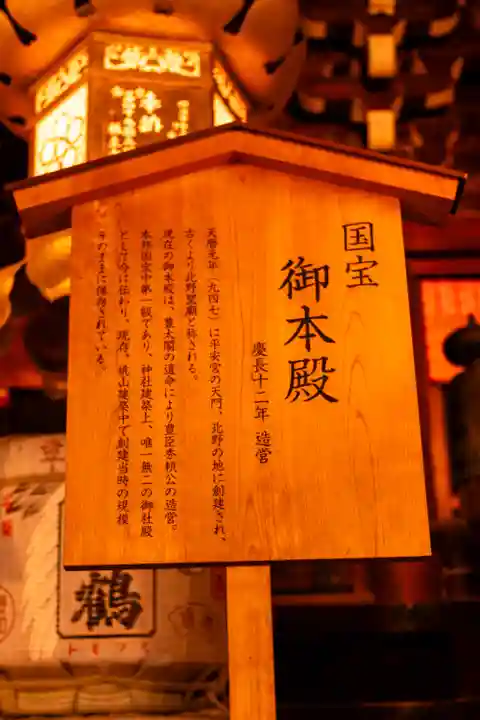 国宝
御本殿
慶長十二年 造営
天暦元年（九四七）に平安宮の天門、北野の地に創建され、
古くより北野聖廟と称される。
現在の御本殿は、豊太閤の遺命により豊臣秀頼公の造営。
本邦国宝中第一級であり、神社建築上、唯一無二の御社殿
として今に伝わり、現存。桃山建築中で創建当時の規模
そのままに保存されている。
奉納
鶴